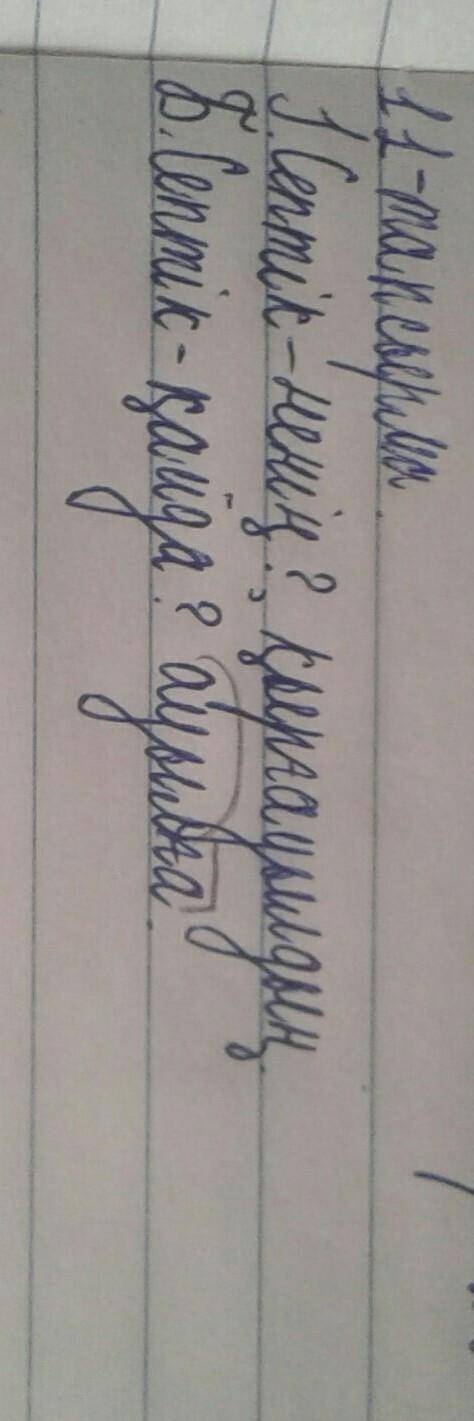 11-тапсырма.
І. Септік-ненің?, қырғауылдың.
Б. Септік-қайда? ауылға.